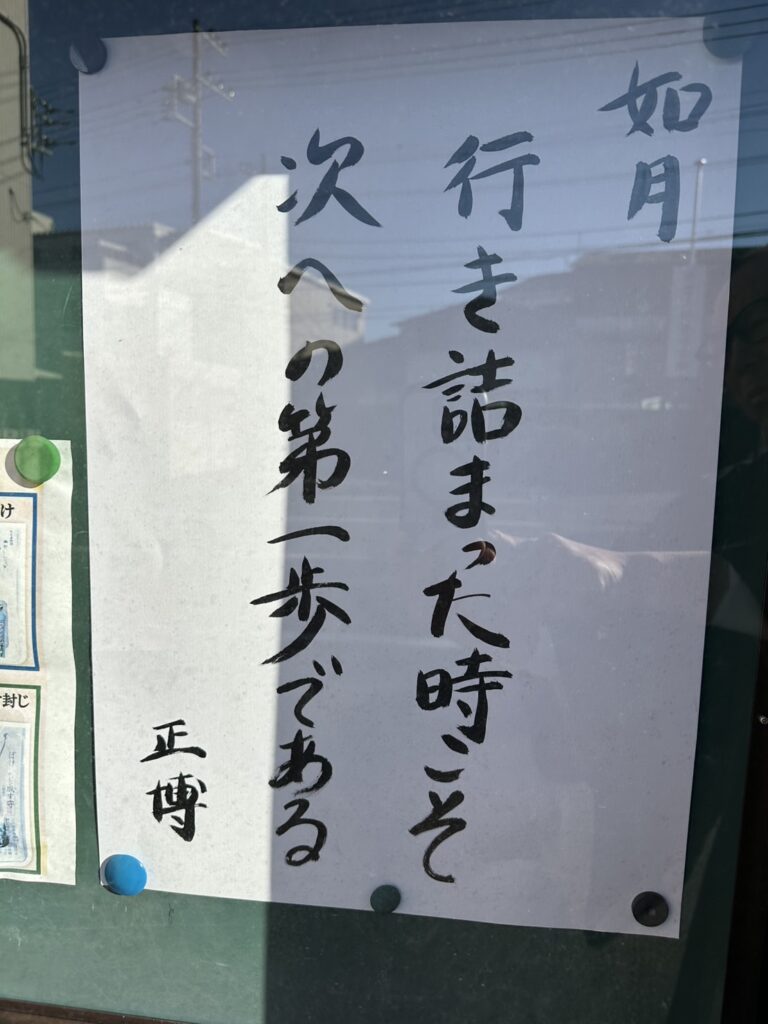 如月
行き詰まった時こそ
次への第一歩である
正博
け
封じ